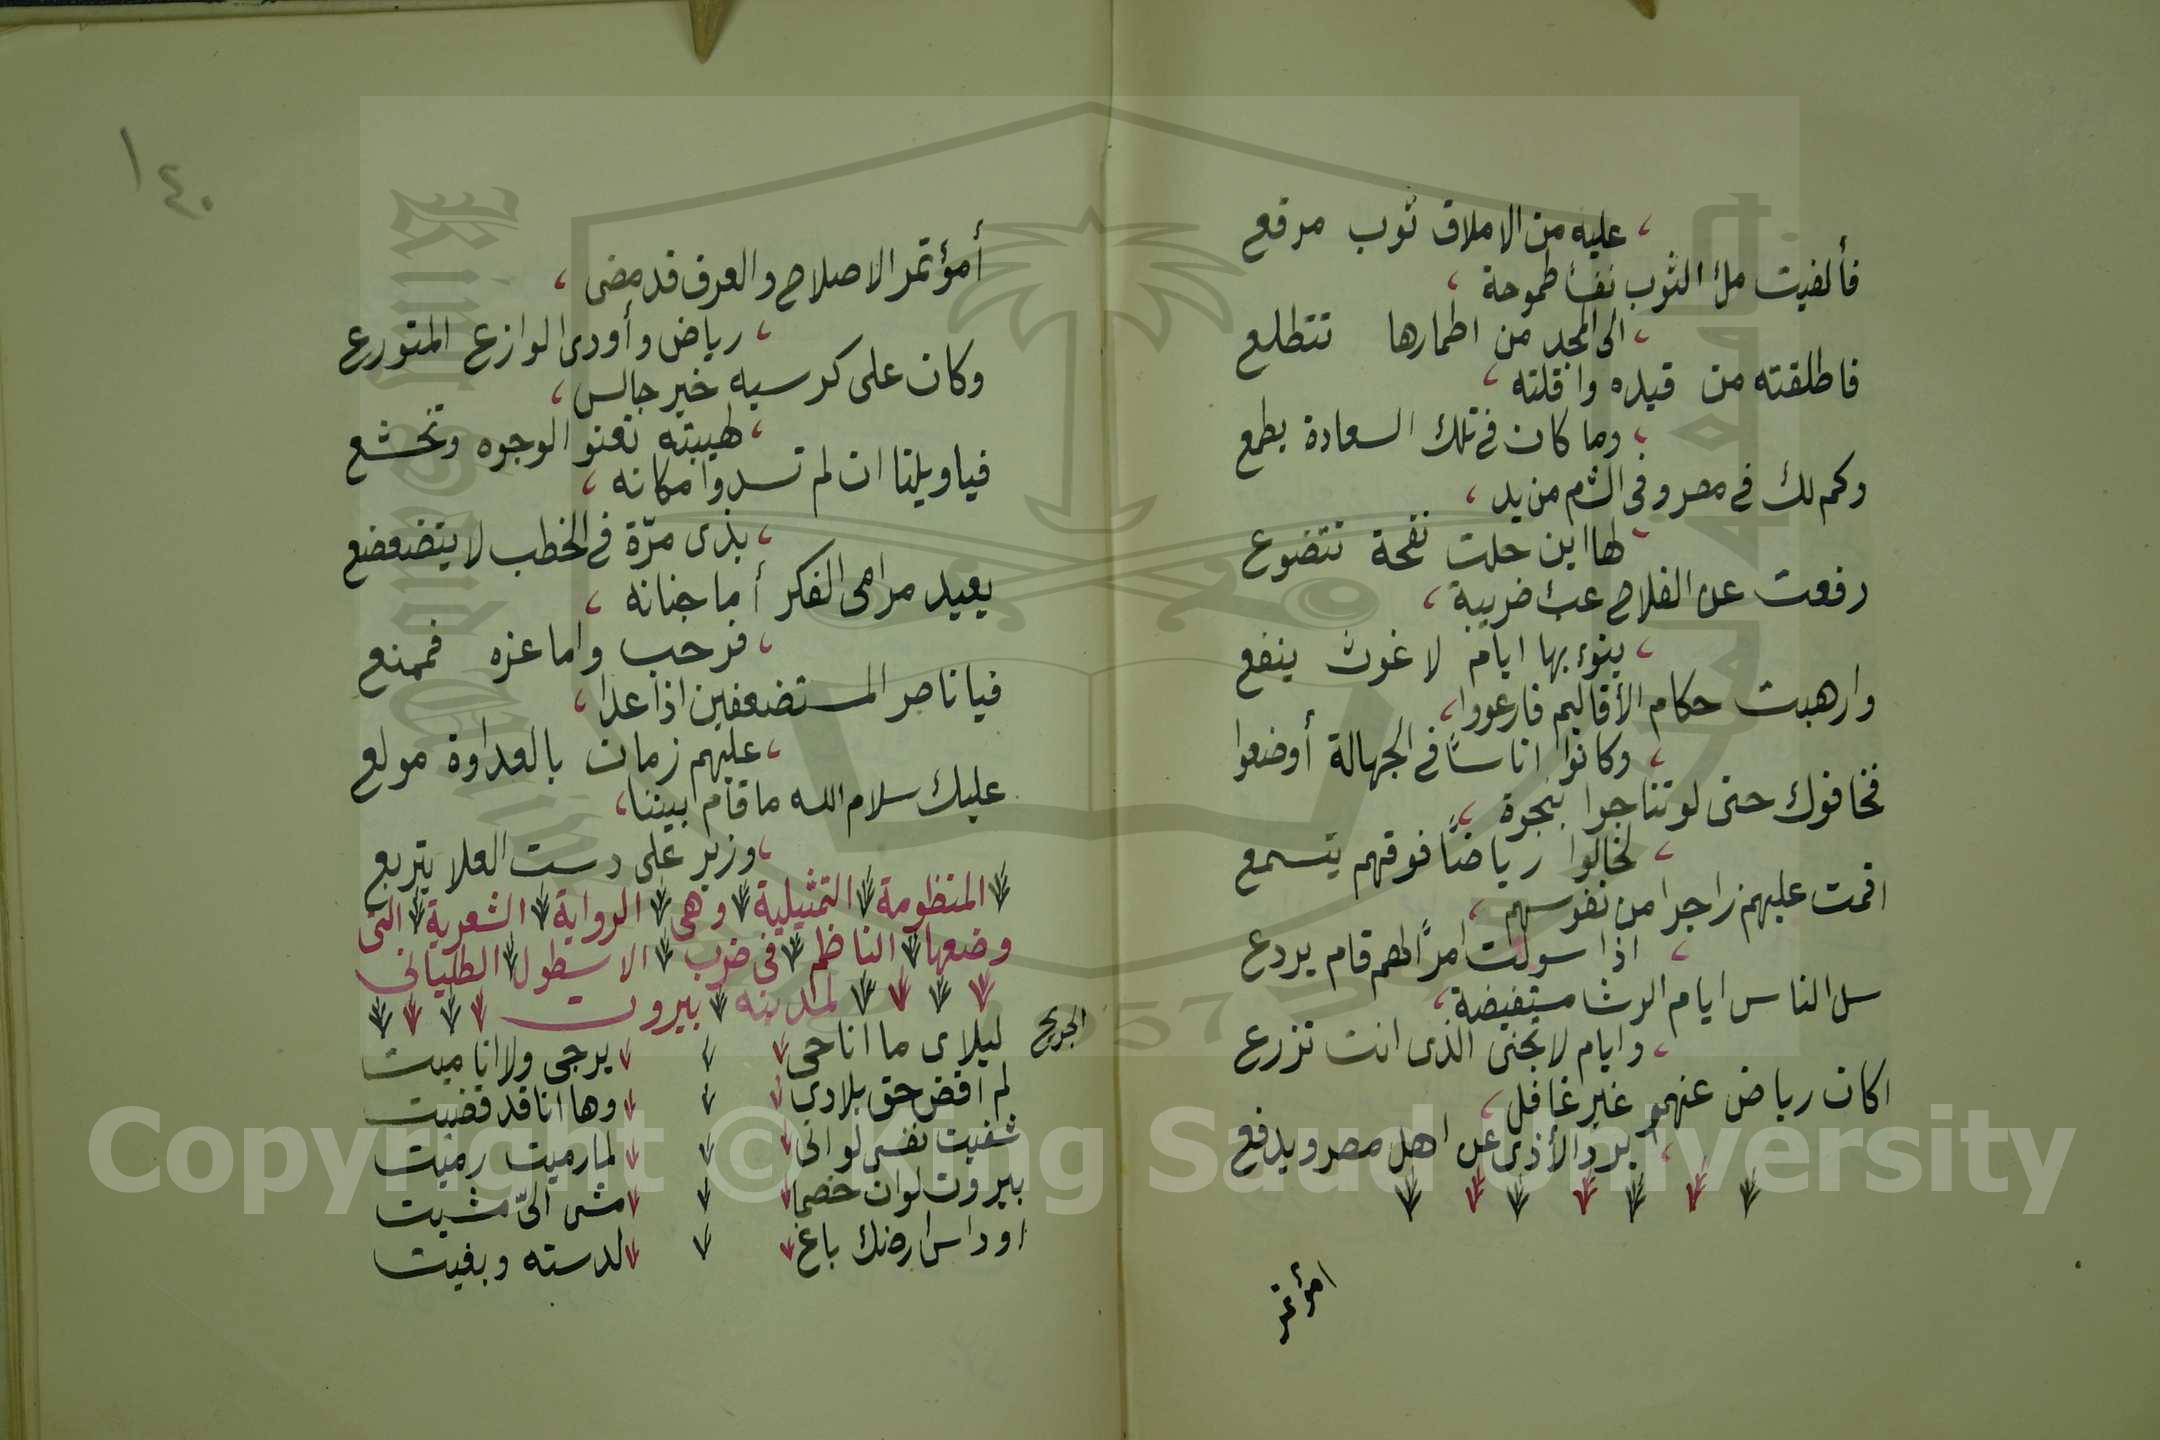 عليه من الاملاق ثوب مرقع
فألفيت ملؤ الثوب نفسا طموحة
الى المجد من اطمارها تتطلع
فاطلقته من قيده واقلته
وما كان فى تلك السعادة يطمع
وكم لك فى مصر وفى الشام من يد
لها اين حلت نفحة تتضوع
رفعت عن الفلاح عبء ضريبة
ينوء بها ايام لا غوث ينفع
وارهبت حكام الأقاليم فارعووا
وكانوا اناساً فى الجهالة أوضعوا
فخافوك حتى لو تناجوا بنجوة
لخالوا رياضاً فوقهم يتسمع
اقمت عليهم زاجرا من نفوسهم
اذا سولت امراً لهم قام يردع
سل الناس ايام الرشا مستفيضة
وايام لا تجنى الذى انت تزرع
اكان رياض عنهمو غير غافل
يرد الأذى عن اهل مصر ويدفع
امؤتمر
١٤٠
أمؤتمر الاصلاح والعرف قد مضى
رياض وأودى الوازع المتورع
وكان على كرسيه خير جالس
لهيبته تعنو الوجوه وتخشع
فيا ويلنا ان لم تسدوا مكانه
بذى مرّة فى الخطب لا يتضعضع
بعيد مرامى الفكر أما جنانه
فرحب واما عزه فممنع
فيا ناصر المستضعفين اذا عدا
عليهم زمان بالعداوة مولع
عليك سلام الله ما قام بيننا
وزير على دست العلا يتربع
المنظومة التمثيلية وهى الرواية الشعرية التى
وضعها الناظم فى ضرب الاسطول الطليانى
لمدينة بيروت
الجريح
ليلاى ما انا حى يرجى ولا انا ميت
لم اقض حق بلادى وها انا قد قضيت
شفيت نفسى لو انى لما رميت رميت
بيروت لو ان خصما مشى الىّ مشيت
او داس ارضك باغ لدسته وبغيت
Copyright © King Saud University
King Saud University
1957